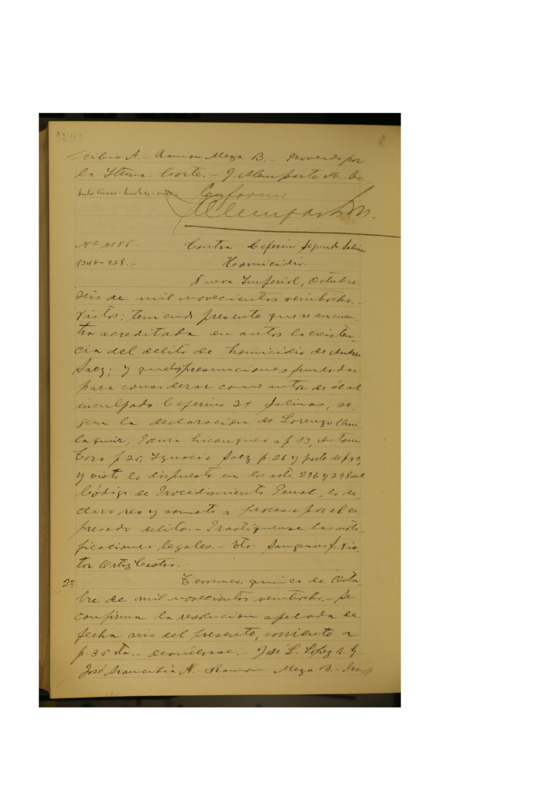 cibia A. - Ramon Meza B. - Proveido por
la Iltma. Corte. - J. Alemparte M.
Conforme
Nº 1185 - Contra Ceferino Segundo Salinas
1340-928. - Homicidio
Nueva Imperial, Octubre
seis de mil novecientos veintiocho. -
Vistos: teniendo presente que se encuen
tra acreditada en autos la existen
cia del delito de homicidio de Andres
Saez; y que hay presunciones fundadas
para considerar como autor de él al
inculpado Ceferino 2º Salinas, se
gun la declaracion de Lorenzo
f. 13, Antonio
Toro f. 25, Ignacio Saez f. 26 y parte de f.
y visto lo dispuesto en los arts. 296 y 298 del
Código de Procedimiento Penal, se de
clara reo y somete a proceso por el es
presado delito. - Practíquense las noti
ficaciones legales. - Sanguino J. Vic
tor Ortiz Castro. -
2º Temuco, quince de Octu
bre de mil novecientos veintiocho. - Se
confirma la resolucion apelada de
fecha seis del presente, corriente a
f. 35 vta. - Devuélvase. - José L. Lopez
José Francibia A. - Ramon Meza B. -